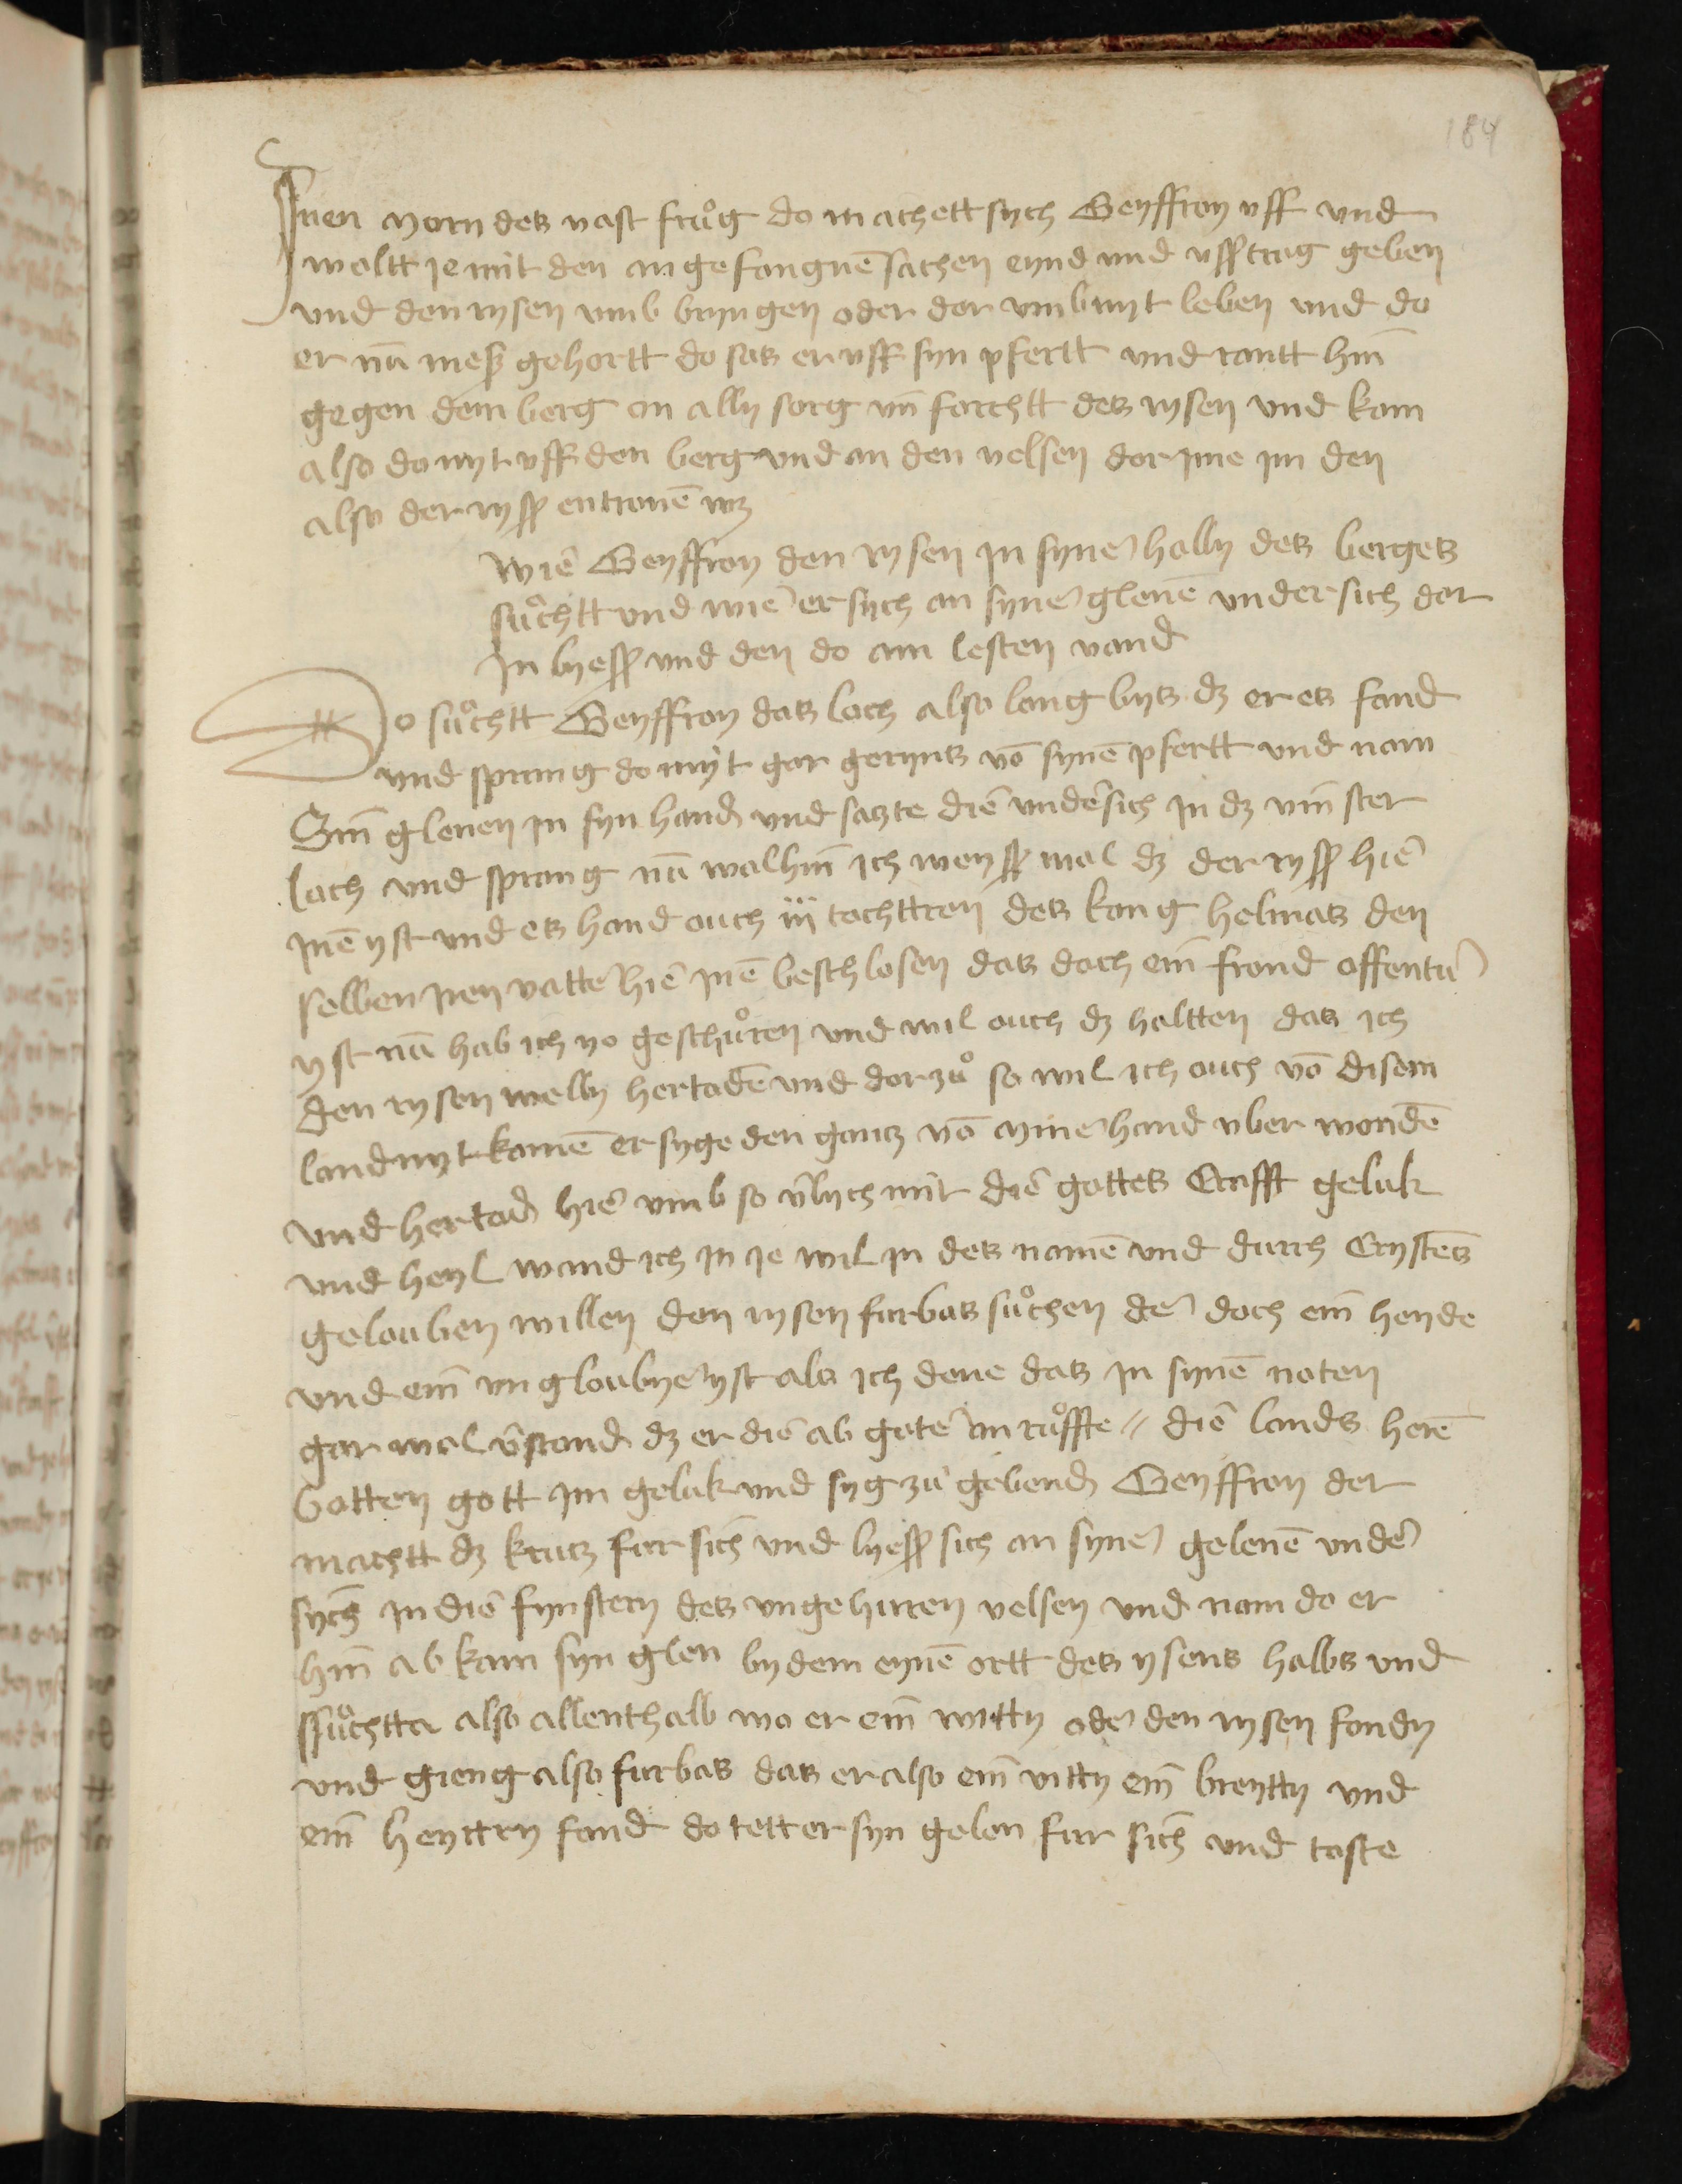 184
Inen morn des vast fruͦg do machett sych Geyffroy vff vnd
woltt ie mit den angefangnē sachen eynd vnd vsstrag geben
vnd den rysen vmb bryngen oder dor vmb nyt leben vnd do
er nū mesß gehortt do sas er vff syn pfertt vnd rantt hin̄
gegen dem berg on ally sorg vn̄ forchtt des rysen vnd kam
also do myt vff den berg vnd an den velsen dor jnne jm den
also der ryß entronnē wz
Wie Geyffroy den rysen jn syner holly des berges
suͦchtt vnd wie er sych an syner glenē vnder sich dor
jn lyeß vnd den do am lesten vand
Do suͦchtt Geyffroy das loch also lang bys dz er es fand
vnd sprang do myt gar gerings vō synē pfertt vnd nam
Sin̄ glenen jn syn hand vnd satzte die vnder sich jn dz vinster
loch vnd sprang nū wal hin̄ ich weyß wol dz der ryß hie
jnē yst vnd es hand ouch iii tochttren des kong helmas den
selben jren vatter hie jnē beschlosen das doch ein̄ frond offentur
yst nū hab ich yo geschuͦren vnd wil ouch dz haltten das ich
den rysen welly hertodē vnd dor zuͦ so wil ich ouch vō disem
land nyt komē er syge den gantz vō myner hand vber wondē
vnd hertod hie vmb so v̄lych mir die gottes Crafft geluk
vnd heyl wand ich jn ie wil jn des namē vnd durch Crystes
gelouben willen den rysen furbas suͦchen der doch ein̄ heyde
vnd ein̄ vngloubyer yst als ich dene das jn synē noten
gar wol v̄stand dz er die ab goter an ruͦffte // die lands herē
botten gott jm geluk vnd syg zu gebend Geyffroy der
machtt dz krutz fur sich vnd lyeß sich an syner gelenē vnder
sych jn die fynstery des vngehuren velsen vnd nam do er
hin̄ ab kam syn glen by dem eynē ortt des ysens halbs vnd
ssuͦchtta also allenthalb wo er ein̄ witty oder den rysen fondy
vnd gieng also furbas das er also ein̄ vitty ein̄ breytty vnd
ein̄ heyttry fand do tett er syn gelen fur sich vnd taste